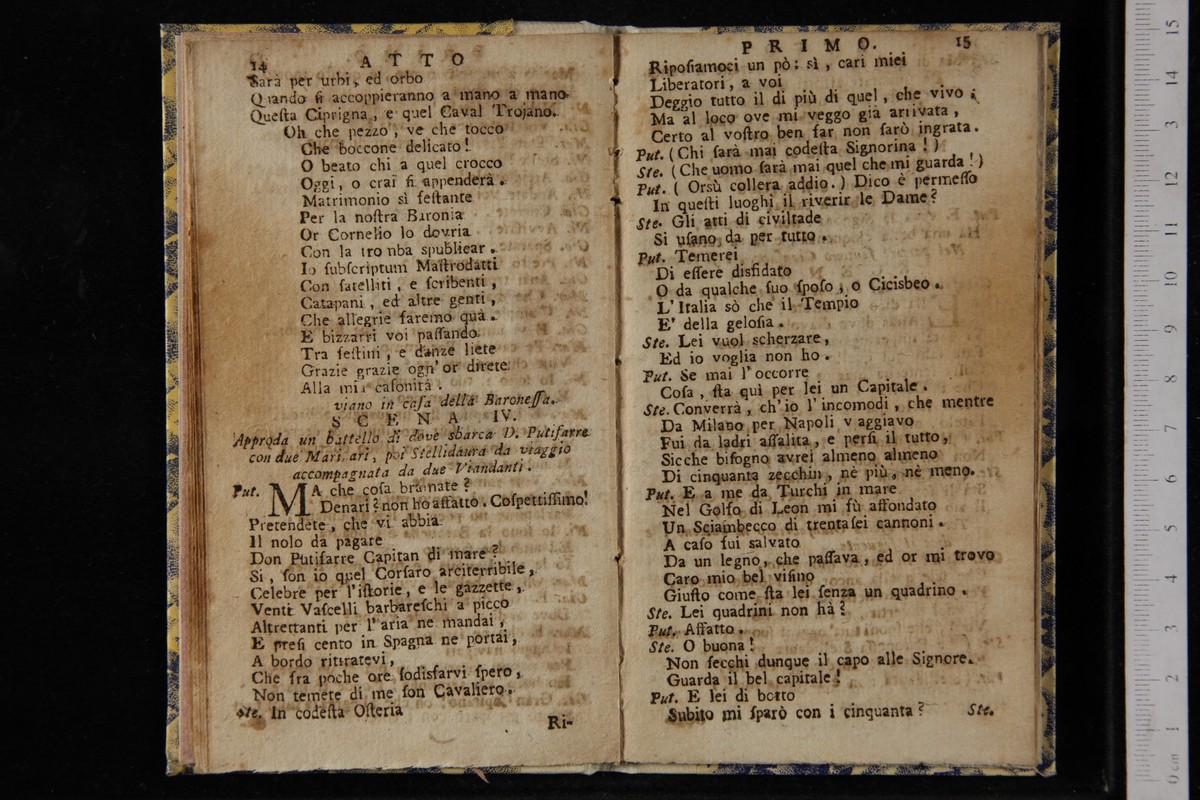 14 ATTO
Sarà per urbi, ed orbo
Quando ſi accoppieranno a mano a mano
Queſta Ciprigna, e quel Caval Trojano.
Oh che pezzo, ve che tocco
Che boccone delicato!
O beato chi a quel crocco
Oggi, o crai ſi appenderà.
Matrimonio sì feſtante
Per la noſtra Baronia
Or Cornelio lo dovria
Con la tromba spublicar.
Io ſubſcriptum Maſtrodatti
Con ſatelliti, e ſcribenti,
Catapani, ed altre genti,
Che allegrie faremo quà.
E bizzarri voi paſſando
Tra feſtini, e danze liete
Grazie grazie ogn' or direte
Alla mia caſonità.
viano in caſa della Baroneſſa.
SCENA IV.
Approda un battello di dove sbarca D. Putifarre
con due Marinari, poi Stellidaura da viaggio
accompagnata da due Viandanti.
Put. MA che coſa bramate?
Denari? non ho affatto. Coſpettiſſimo!
Pretendete, che vi abbia
Il nolo da pagare
Don Putifarre Capitan di mare?
Si, ſon io quel Corſaro arciterribile,
Celebre per l'iſtorie, e le gazzette,
Venti Vaſcelli barbareſchi a picco
Altrettanti per l'aria ne mandai,
E preſi cento in Spagna ne portai,
A bordo ritiratevi,
Che fra poche ore ſodisfarvi ſpero,
Non temete di me ſon Cavaliero.
Ste. In codeſta Oſteria
Ri-
PRIMO. 15
Ripoſiamoci un pò: sì, cari miei
Liberatori, a voi
Deggio tutto il di più di quel, che vivo;
Ma al loco ove mi veggo già arrivata,
Certo al voſtro ben far non ſarò ingrata.
Put. (Chi ſarà mai codeſta Signorina!)
Ste. (Che uomo ſarà mai quel che mi guarda!)
Put. (Orsù collera addio.) Dico è permeſſo
In queſti luoghi il riverir le Dame?
Ste. Gli atti di civiltade
Si uſano da per tutto.
Put. Temerei
Di eſſere disfidato
O da qualche ſuo ſpoſo, o Cicisbeo.
L'Italia sò che il Tempio
E' della geloſia.
Ste. Lei vuol scherzare,
Ed io voglia non ho.
Put. Se mai l'occorre
Coſa, ſta quì per lei un Capitale.
Ste. Converrà, ch'io l'incomodi, che mentre
Da Milano per Napoli v aggiavo
Fui da ladri aſſalita, e perſi il tutto,
Sicche biſogno avrei almeno almeno
Di cinquanta zecchini, nè più, nè meno.
Put. E a me da Turchi in mare
Nel Golfo di Leon mi fù affondato
Un Sciambecco di trentaſei cannoni.
A caſo fui salvato
Da un legno, che paſſava, ed or mi trovo
Caro mio bel viſino
Giuſto come ſta lei ſenza un quadrino.
Ste. Lei quadrini non hà?
Put. Affatto.
Ste. O buona!
Non ſecchi dunque il capo alle Signore.
Guarda il bel capitale!
Put. E lei di botto
Subito mi ſparò con i cinquanta?
Ste.
0 cm 1 2 3 4 5 6 7 8 9 10 11 12 13 14 15